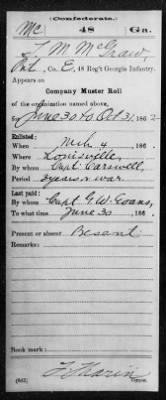 (Confederate.)
Mc 48 Ga.
T. M. McGraw,
Pvt, Co. E, 48 Reg't Georgia Infantry.
Appears on
Company Muster Roll
of the organization named above,
for June 30 to Oct 31, 1862
Enlisted:
When Mch. 4, 186 .
Where Louisville,
By whom Capt. Carswell,
Period 3 years or war.
Last paid:
By whom Capt. G. W. Evans,
To what time June 30, 186 .
Present or absent Present
Remarks:
Book mark:
(642) Copyist.